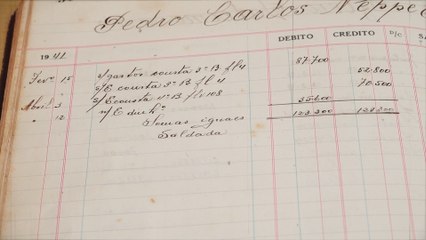 Pedro Carlos Neppe
DEBITO CREDITO D/C
1941
Fevº 15 s/gastos consta 3º 13 fl 4 87.700
s/E consta 3º 13 fl 4 52.800
Abril 3 s/E consta 4º 13 fls 108 70.500
" 12 n/E dinhº 35.600
Somas iguaes 123.300 123.300
Saldada